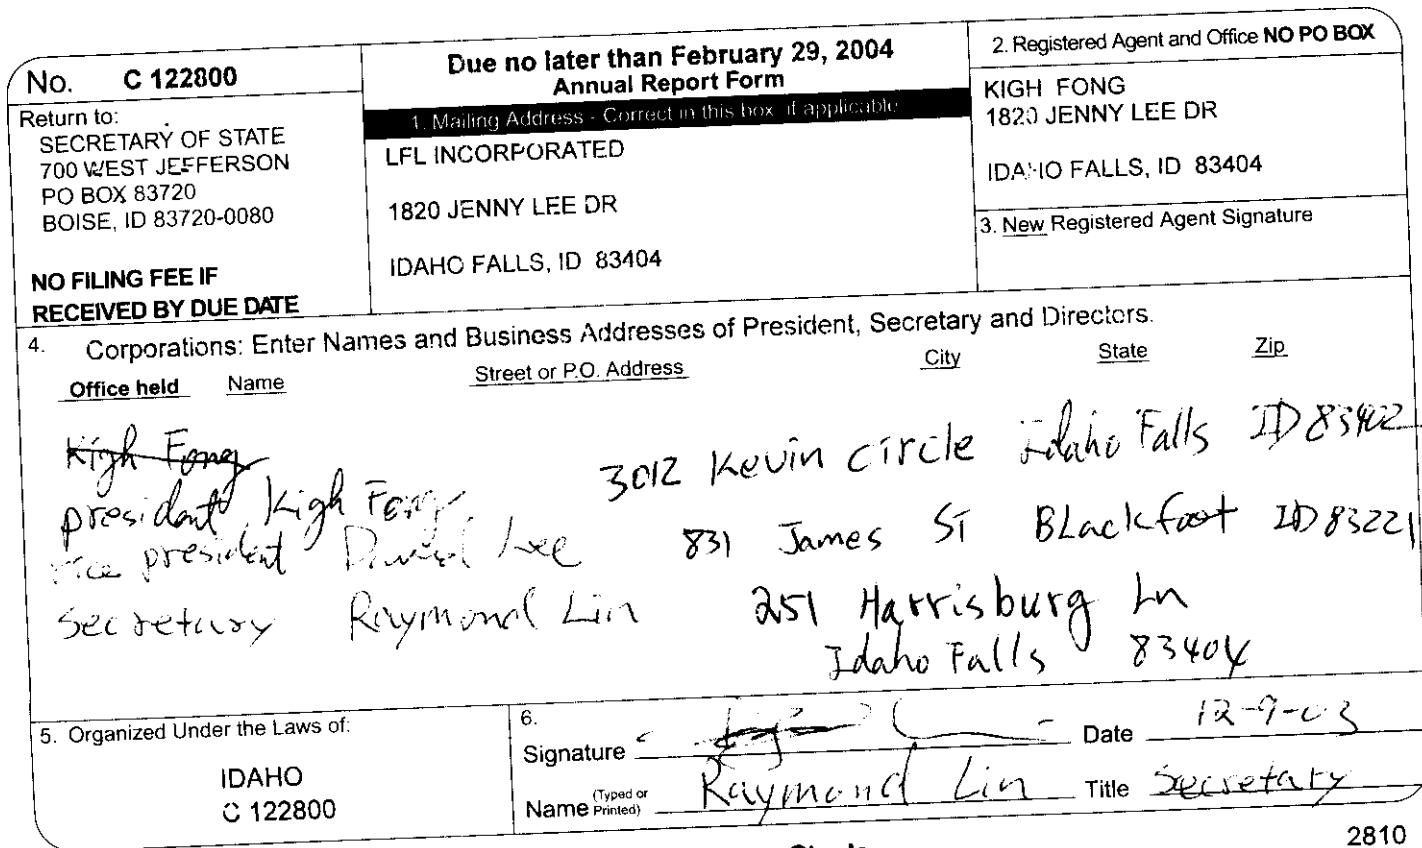 No. C 122800
Return to:
SECRETARY OF STATE
700 WEST JEFFERSON
PO BOX 83720
BOISE, ID 83720-0080
NO FILING FEE IF
RECEIVED BY DUE DATE
Due no later than February 29, 2004
Annual Report Form
1. Mailing Address - Correct in this box if applicable
LFL INCORPORATED
1820 JENNY LEE DR
IDAHO FALLS, ID 83404
2. Registered Agent and Office NO PO BOX
KIGH FONG
1820 JENNY LEE DR
IDAHO FALLS, ID 83404
3. New Registered Agent Signature
4. Corporations: Enter Names and Business Addresses of President, Secretary and Directors.
Office held Name Street or P.O. Address City State Zip
Kigh Fong
president Kigh Fong 3012 Kevin circle Idaho Falls ID 83402
vice president David Lee 831 James ST BLackfoot ID 83221
Secretary Raymond Lin 251 Harrisburg Ln
Idaho Falls 83404
5. Organized Under the Laws of:
IDAHO
C 122800
6.
Signature Date 12-9-03
Name (Typed or Printed) Raymond Lin Title Secretary
2810